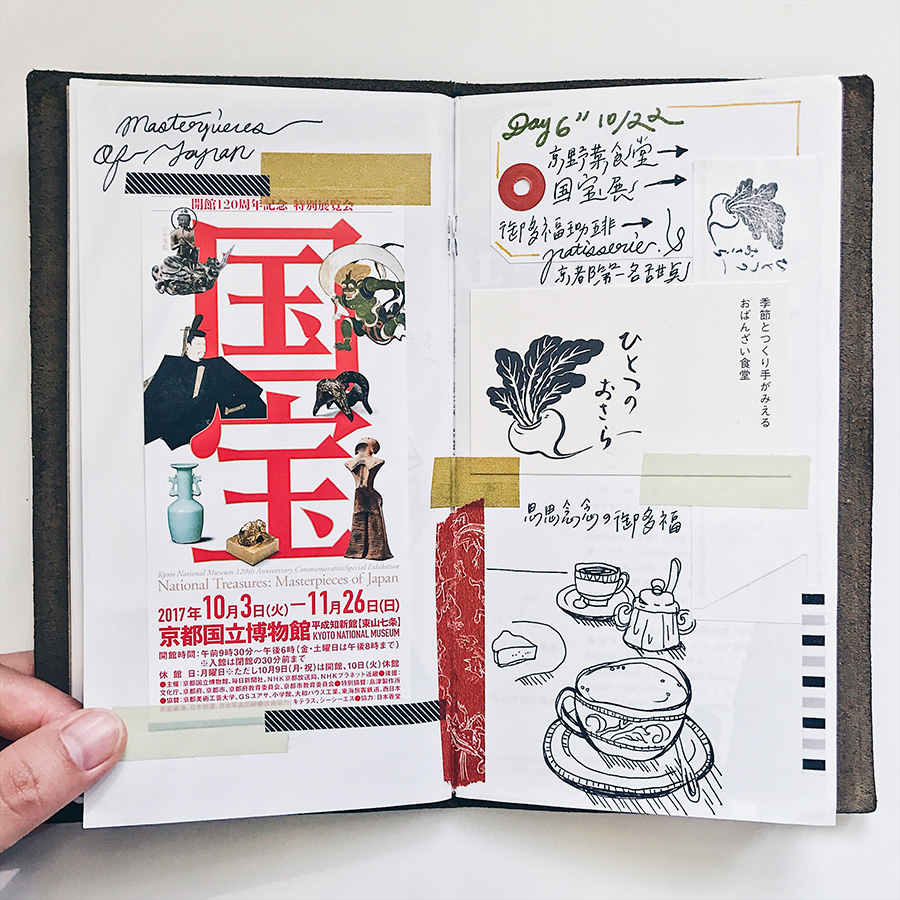 Masterpieces
Of Japan
開館120周年記念 特別展覧会
国宝
Kyoto National Museum 120th Anniversary Commemorative Special Exhibition
National Treasures: Masterpieces of Japan
2017年10月3日(火)ー11月26日(日)
京都国立博物館 平成知新館【東山七条】
KYOTO NATIONAL MUSEUM
開館時間:午前9時30分〜午後6時(金・土曜日は午後8時まで)
※入館は閉館の30分前まで
休館日:月曜日※ただし10月9日(月・祝)は開館、10日(火)休館
●主催:京都国立博物館、毎日新聞社、NHK京都放送局、NHKプラネット近畿●後援:
文化庁、京都府、京都市、京都府教育委員会、京都市教育委員会●特別協賛:島津製作所
●協賛:京都美術工芸大学、GSユアサ、小学館、大和ハウス工業、東海旅客鉄道、西日本
キテラス、シーシーエス●協力:日本香堂
Day 6" 10/22
京野菜食堂→
国宝展→
御多福珈琲→
patisserie.
京都第一名甜点
ひとつの
おさら
季節とつくり手がみえる
おばんざい食堂
ひとつの
おさら
思思念念の御多福